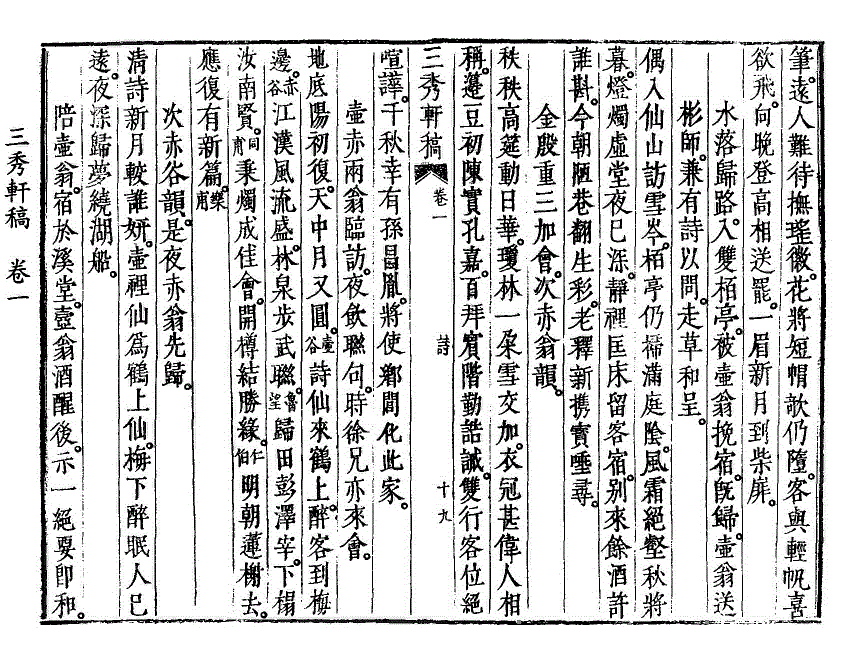 筆。遠人難待撫瑤徽。花將短帽歌仍墮。客與輕帆喜
欲飛。向晚登高相送罷。一眉新月到柴扉。
水落歸路。入雙栢亭。被壷翁挽宿。旣歸。壷翁送一
彬師。兼有詩以問。走草和呈。
偶入仙山訪雪岑。栢亭仍掃滿庭陰。風霜絕壑秋將
暮。燈燭虛堂夜已深。靜裡匡床留客宿。别來餘酒許
誰斟。今朝陋巷翻生彩。老釋新携寶唾尋。
金殷重三加會。次赤翁韻。
秩秩高筵動日華。瓊林一朶雪交加。衣冠甚偉人相
稱。籩豆初陳實孔嘉。百拜賓階勤誥誠。雙行客位絕
三秀軒稿 卷一 詩 十九
喧譁。千秋幸有孫昌胤。將使鄕閭化此家。
壷赤兩翁臨訪。夜飮聯句。時徐兄亦來會。
地底陽初復。天中月又圓。壷谷詩仙來鶴上。醉客到梅
邊。赤谷江漢風流盛。林泉步武聯。魯望歸田彭澤宰。下榻
汝南賢。同甫秉燭成佳會。開樽結勝緣。仁伯明朝蓮榭去。
應復有新篇。樂甫
次赤谷韻。是夜赤翁先歸。
清詩新月較誰姸。壷裡仙爲鶴上仙。梅下醉眠人已
遠。夜深歸夢繞湖船。
陪壷翁。宿於溪堂。壷翁酒醒後。示一絕要卽和。
三秀軒稿 卷一